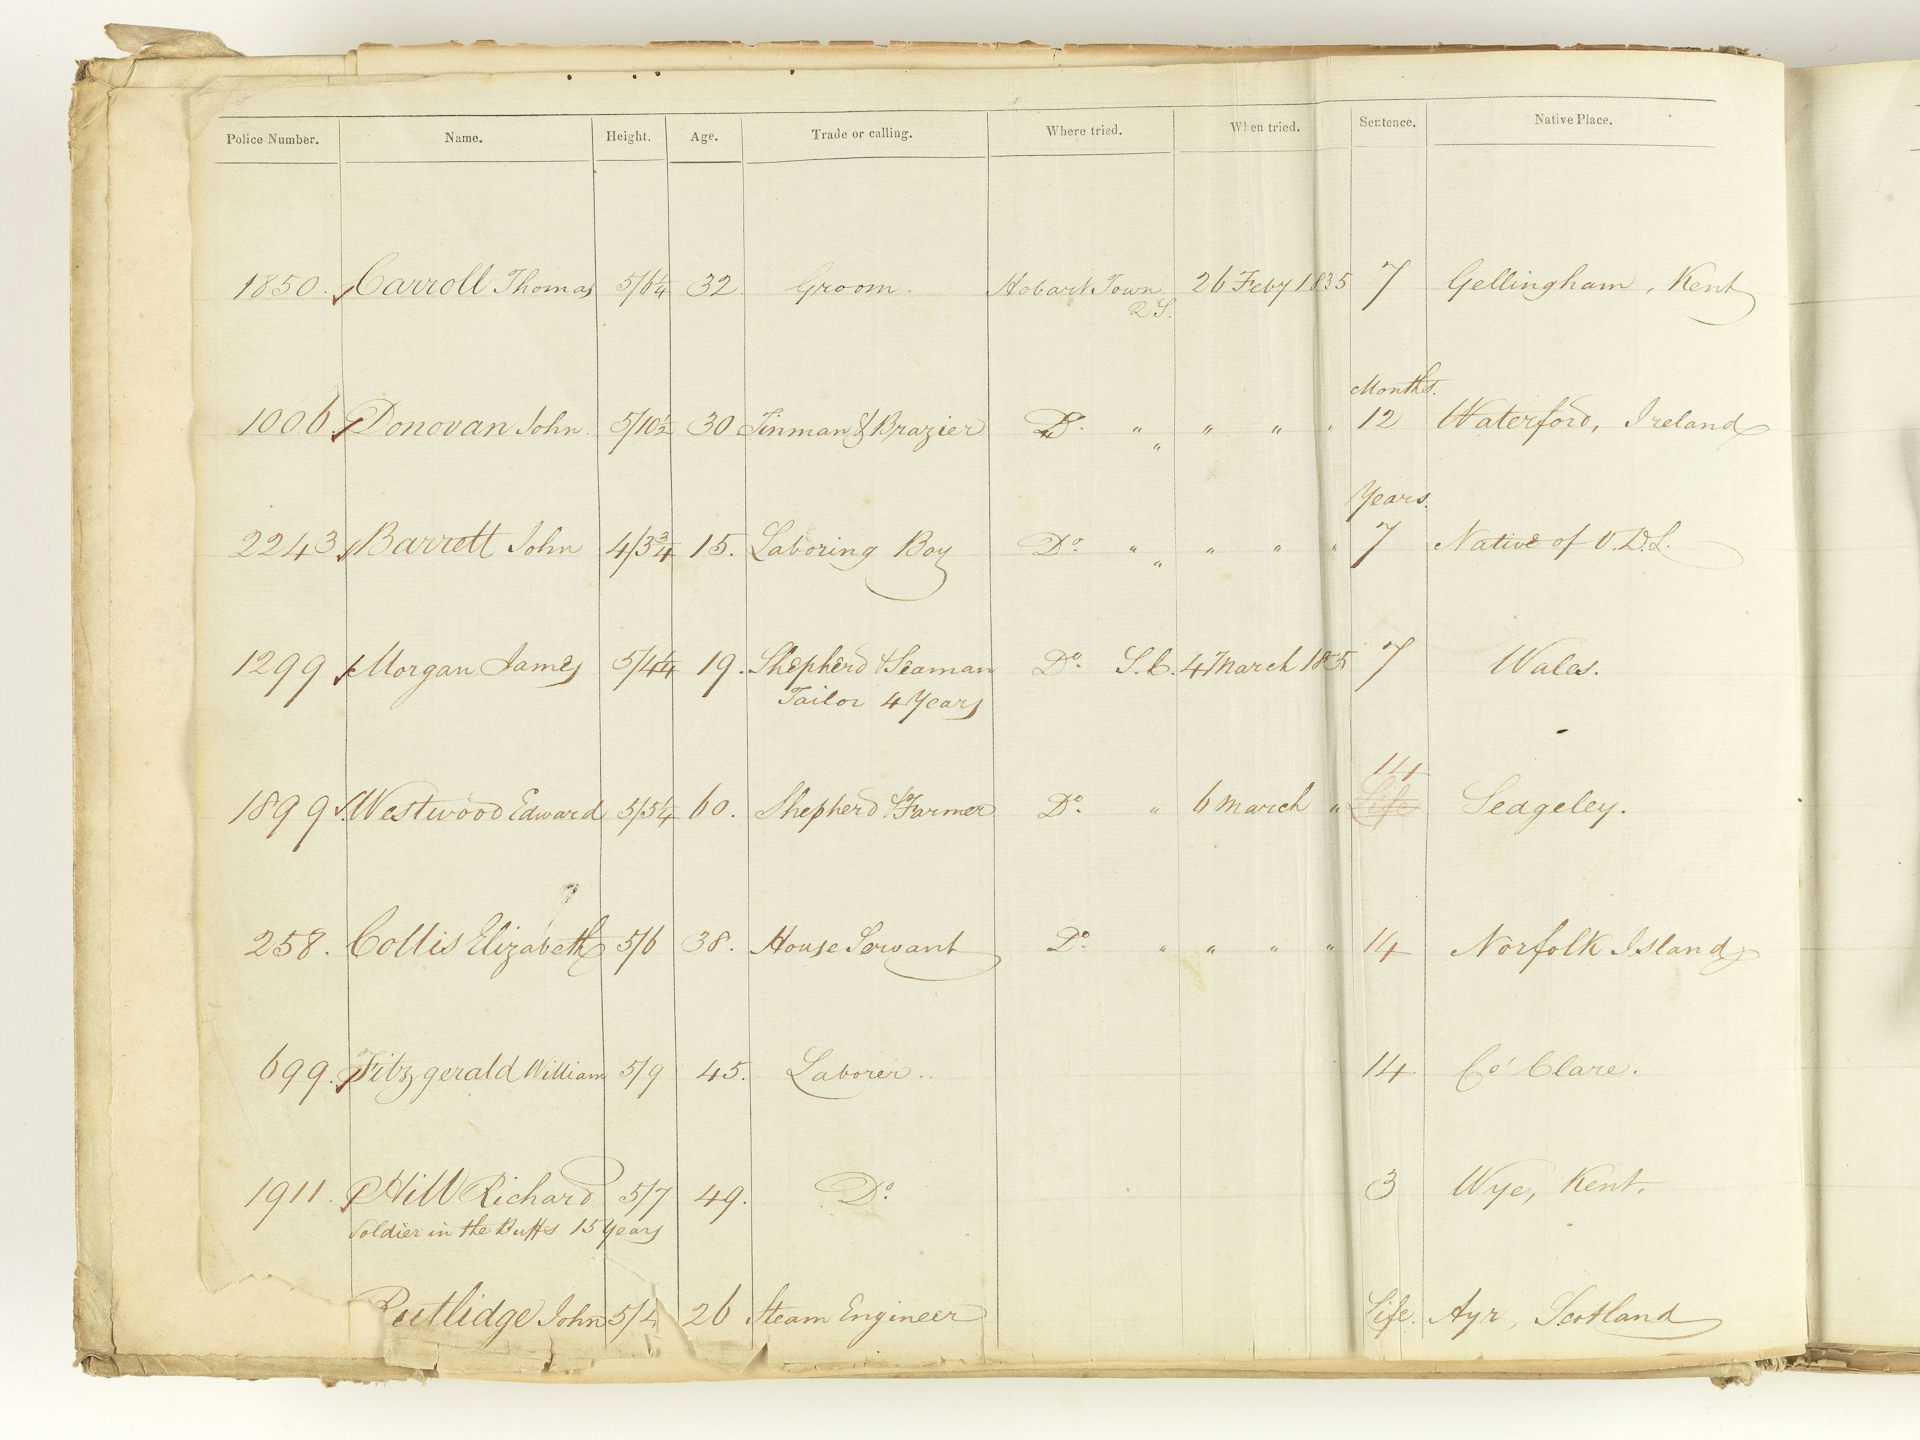 Police Number. Name. Height. Age. Trade or calling. Where tried. When tried. Sentence. Native Place.
1850. Carroll Thomas 5/6¼ 32 Groom. Hobart Town 26 Feby 1835 7 Gellingham, Kent
2 S.
Months.
1006 Donovan John. 5/10½ 30 Tinman & Brazier Do. " " " " 12 Waterford, Ireland
"
Years.
2243 Barrett John 4/3¾ 15. Laboring Boy Do. " " " " 7 Native of V.D.L.
"
1299 Morgan James 5/4¼ 19. Shepherd & Seaman Do. S.C. 4 March 1835 7 Wales.
Tailor 4 Years
14
1899 Westwood Edward 5/5¼ 60. Shepherd & Farmer Do. " 6 March " Life Sedgeley.
258. Collis Elizabeth 5/6 38. House Servant Do. " " " " 14 Norfolk Island
699. Fitzgerald William 5/9 45. Laborer.. 14 Co' Clare.
1911. Hill Richard 5/7 49. Do. 3 Wye, Kent.
Soldier in the Buffs 15 Years
Rutlidge John 5/4 26 Steam Engineer Life. Ayr, Scotland